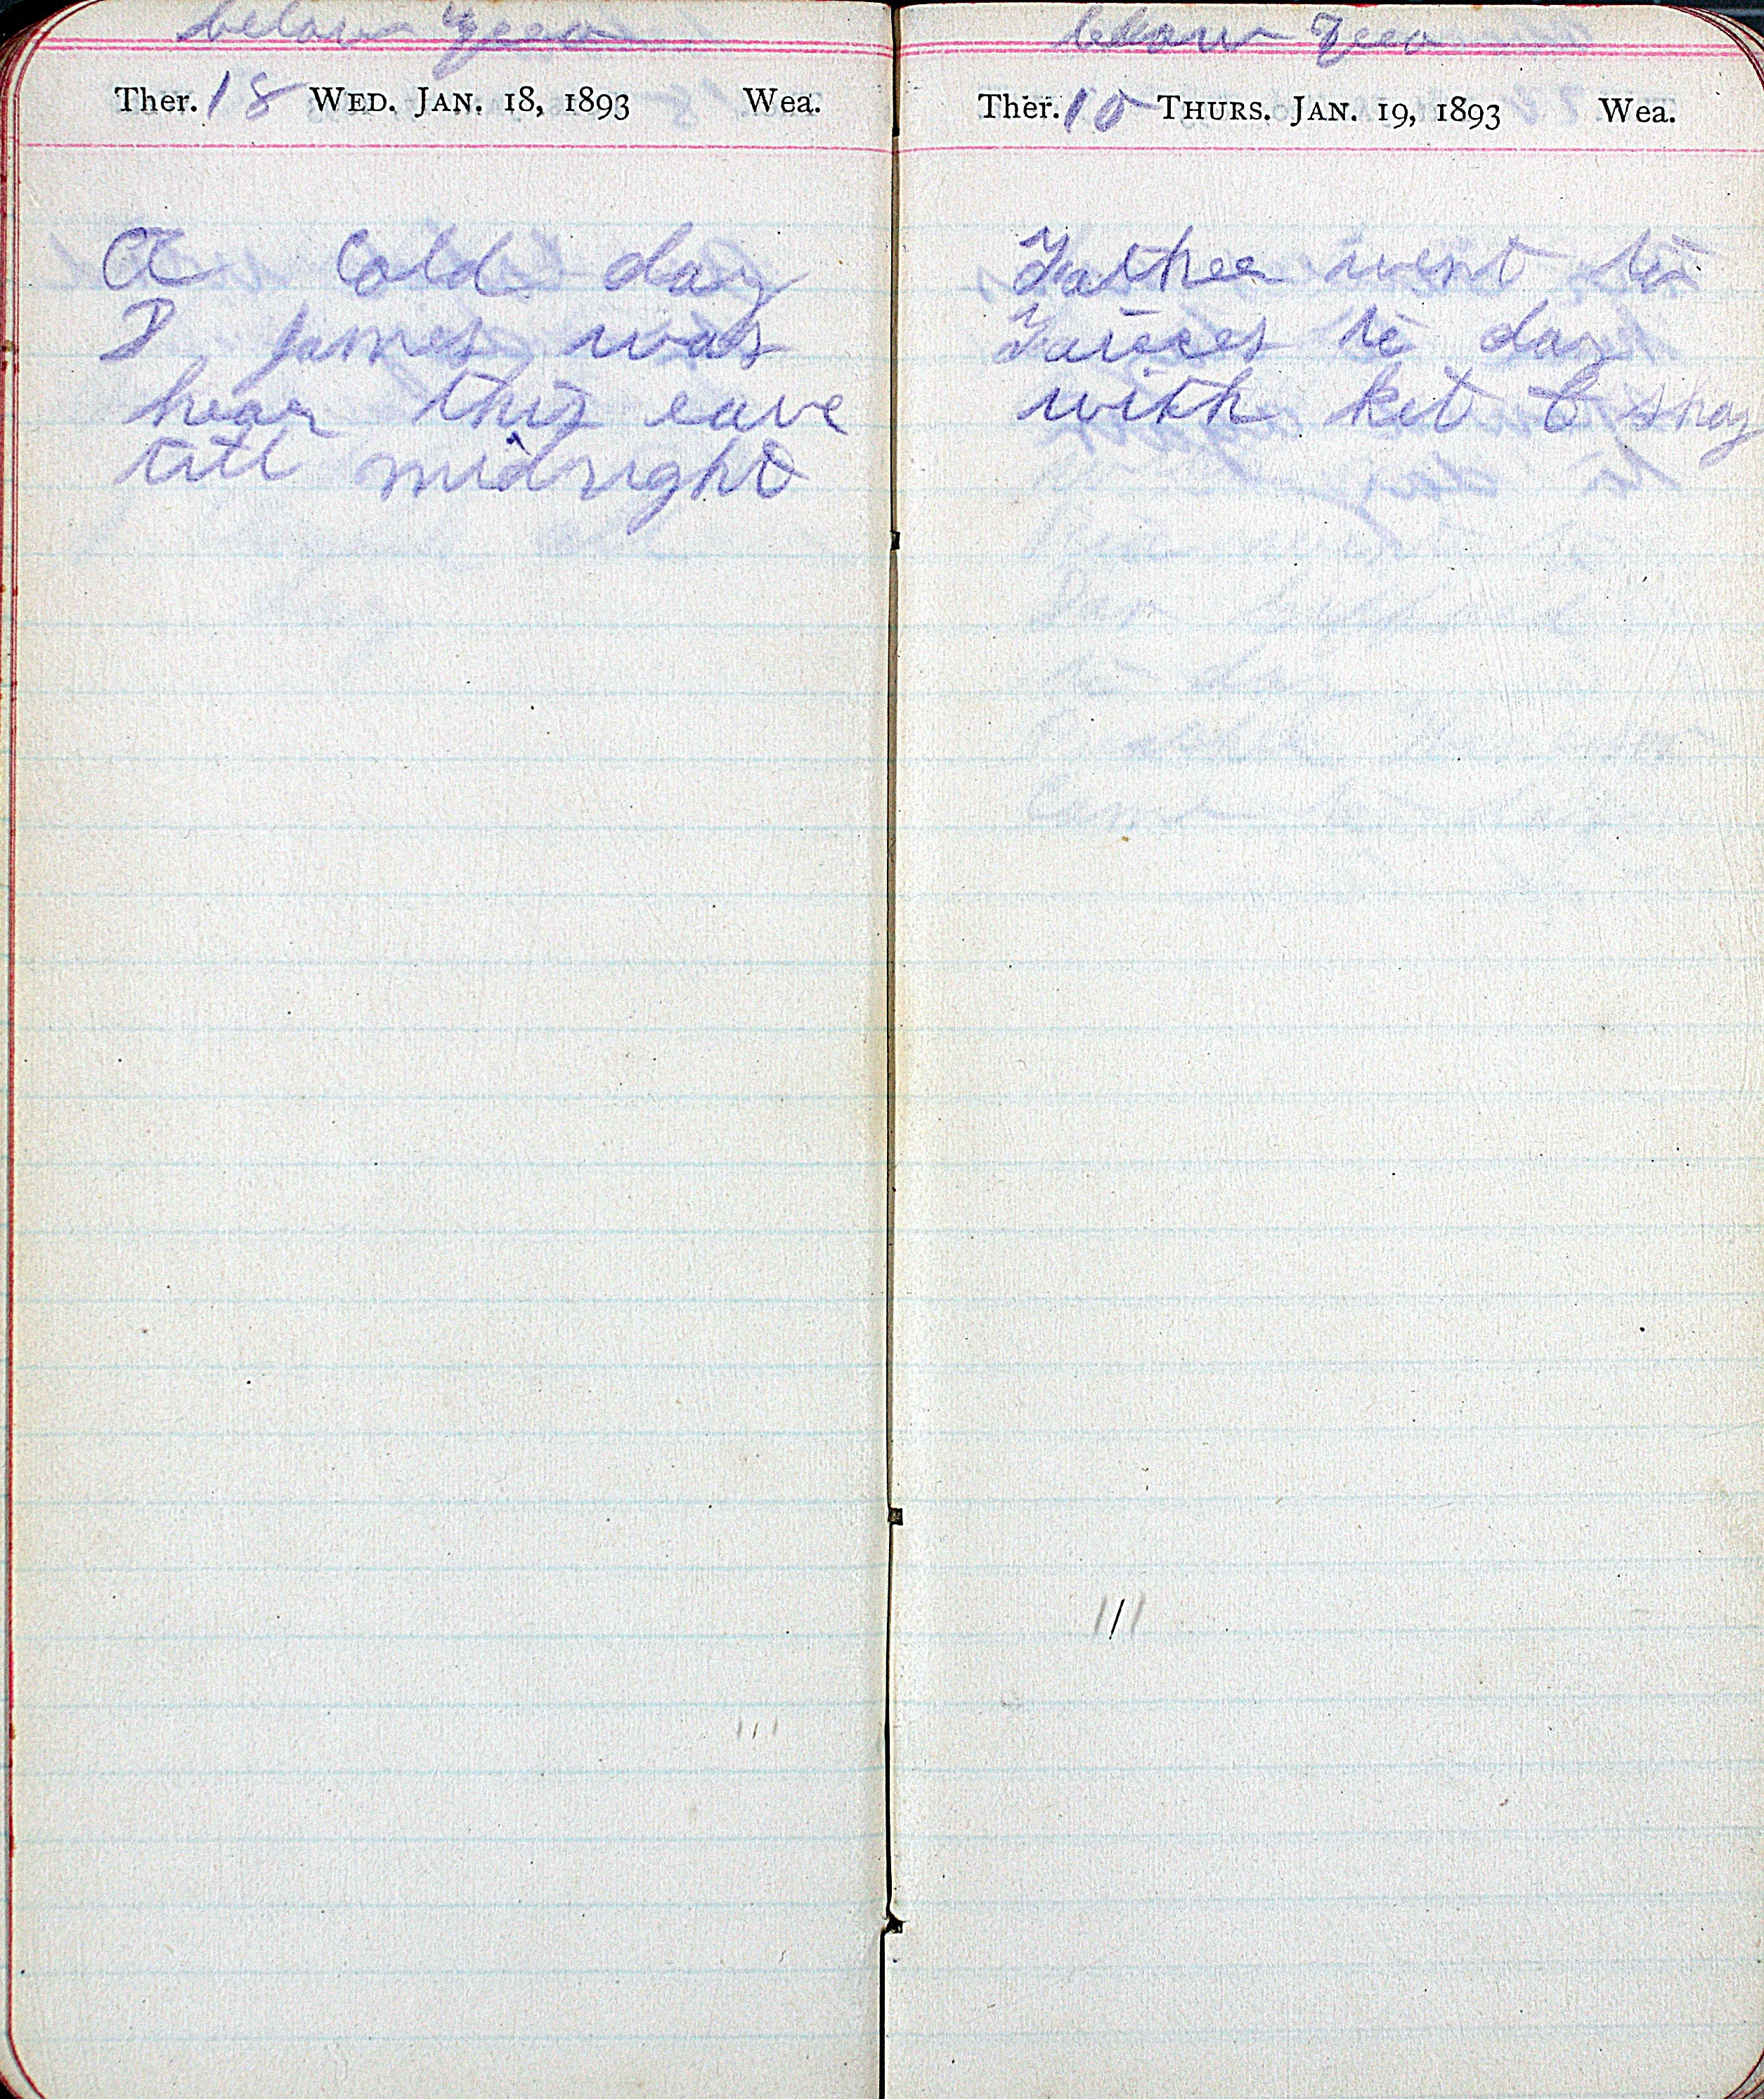 below zero
Ther. 18 WED. JAN. 18, 1893 Wea.
A Cold day
D James was
hear this eave
till midnight
below zero
Ther. 10 THURS. JAN. 19, 1893 Wea.
Father went to
to day
with kit & shay